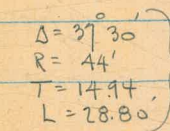 Δ = 37° 30'
R = 44'
T = 14.94'
L = 28.80'